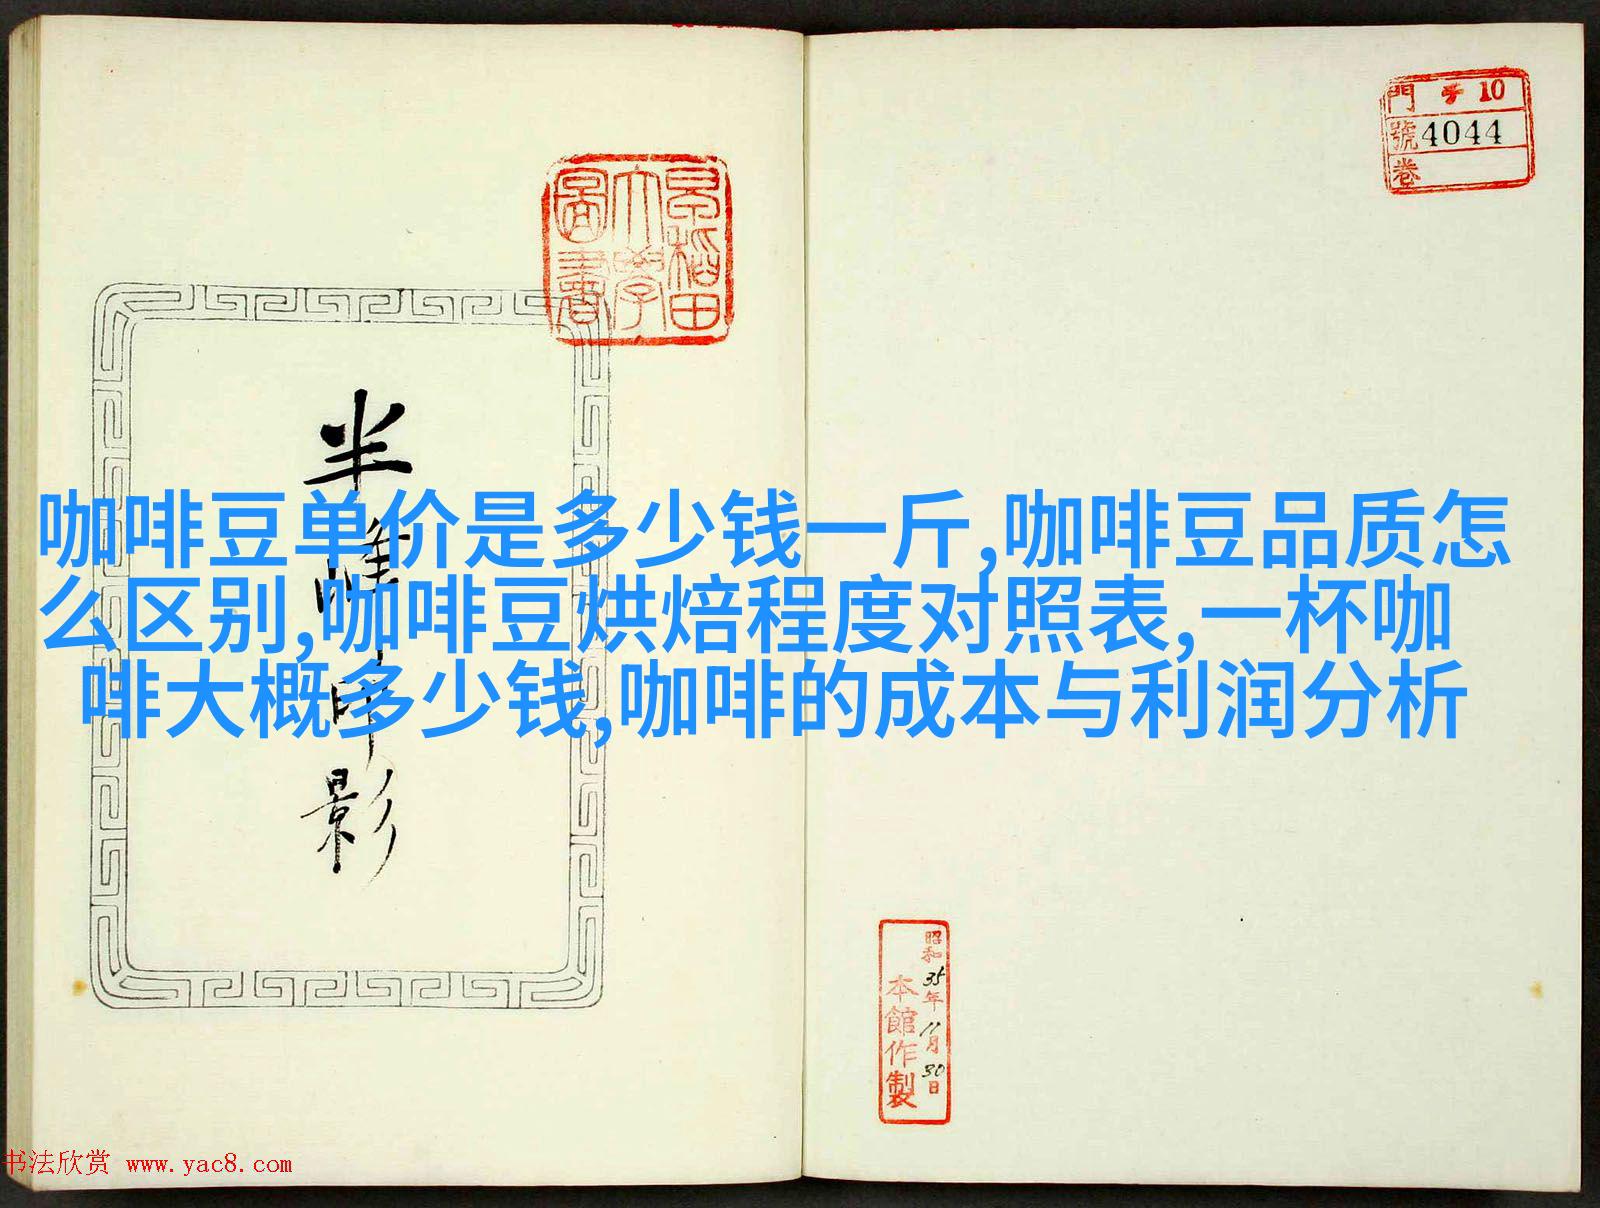 門 10
號 4044
卷
早稻田
大學
圖書
半
印
影
咖啡豆单价是多少钱一斤,咖啡豆品质怎
么区别,咖啡豆烘焙程度对照表,一杯咖
啡大概多少钱,咖啡的成本与利润分析
昭和35年11月30日
本館作製
书法欣赏 www.yac8.com